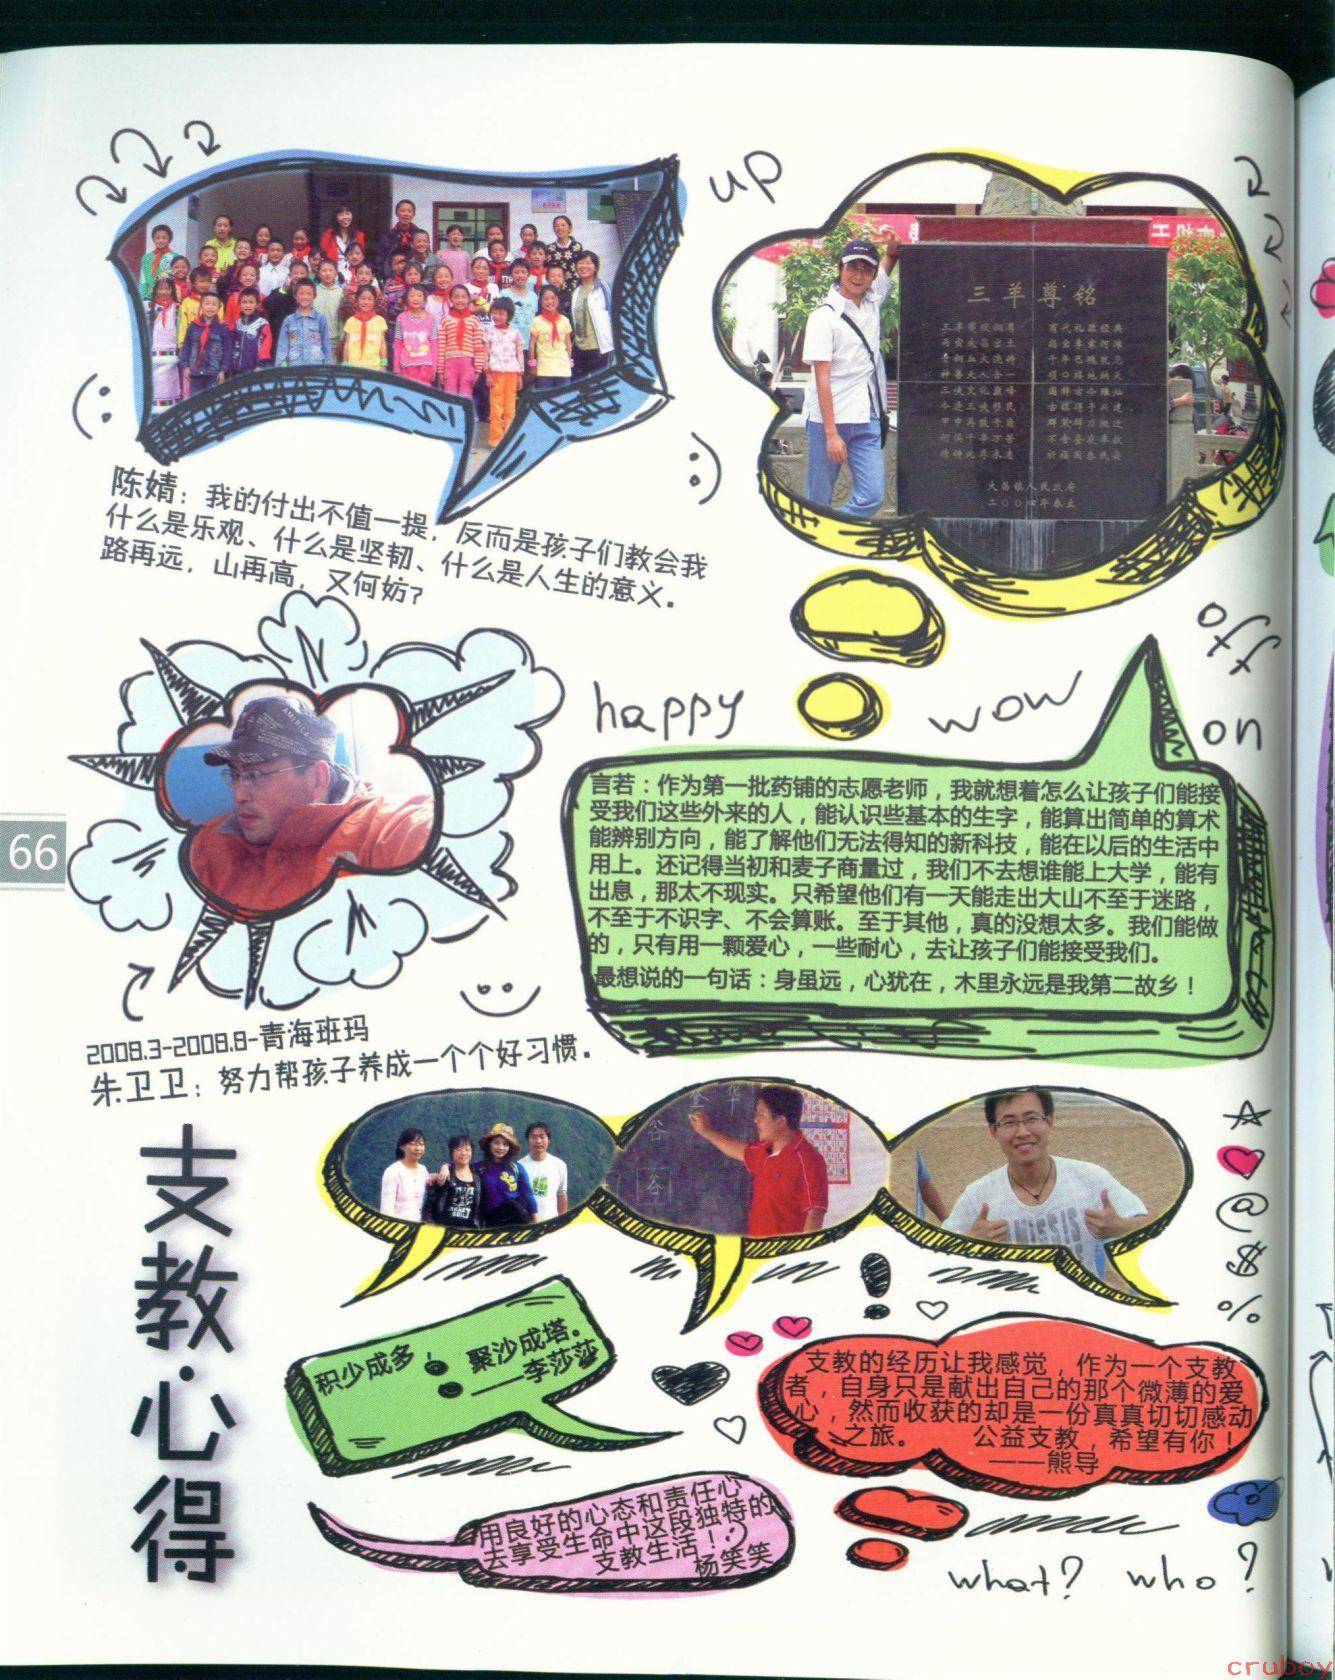 up
三羊尊铭
大昌镇人民政府
二〇〇四年春立
陈婧：我的付出不值一提，反而是孩子们教会我
什么是乐观、什么是坚韧、什么是人生的意义。
路再远，山再高，又何妨？
happy
wow
on
言若：作为第一批药铺的志愿老师，我就想着怎么让孩子们能接
受我们这些外来的人，能认识些基本的生字，能算出简单的算术
能辨别方向，能了解他们无法得知的新科技，能在以后的生活中
用上。还记得当初和麦子商量过，我们不去想谁能上大学，能有
出息，那太不现实。只希望他们有一天能走出大山不至于迷路，
不至于不识字、不会算账。至于其他，真的没想太多。我们能做
的，只有用一颗爱心，一些耐心，去让孩子们能接受我们。
最想说的一句话：身虽远，心犹在，木里永远是我第二故乡！
66
2009.3-2009.8-青海班玛
朱卫卫：努力帮孩子养成一个个好习惯。
支教·心得
谷
谷
@
$
%
积少成多，聚沙成塔。
——李莎莎
支教的经历让我感觉，作为一个支教
者，自身只是献出自己的那个微薄的爱
心，然而收获的却是一份真真切切感动
之旅。 公益支教，希望有你！
——熊导
用良好的心态和责任心
去享受生命中这段独特的
支教生活！
杨笑笑
what? who?
cruboy